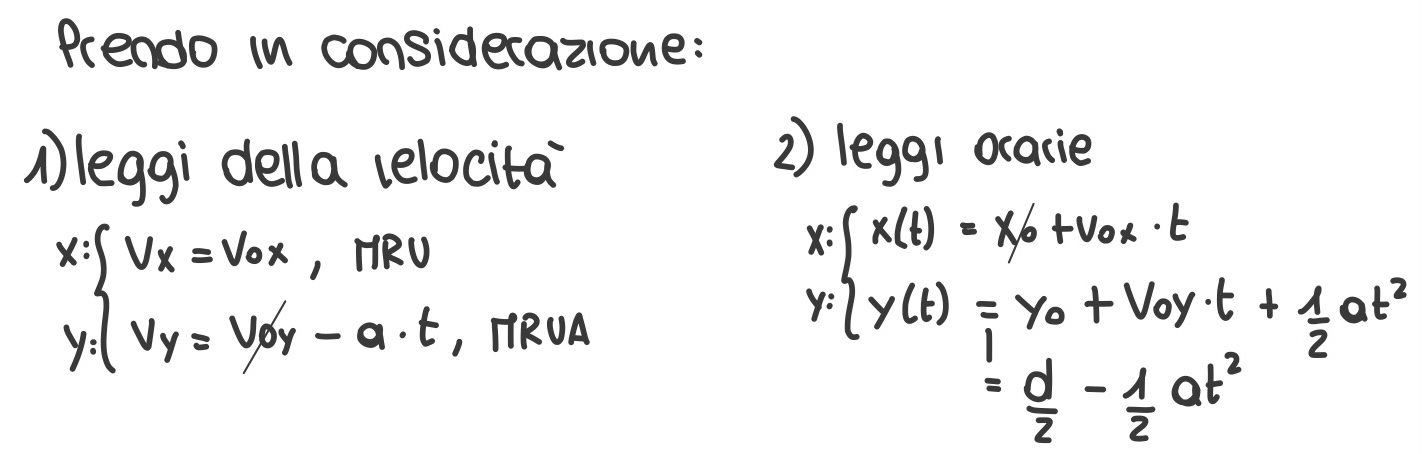 Prendo in considerazione:
1) leggi della velocità
x: { Vx = Vox , MRU
y: { Vy = Voy - a · t , MRUA
2) leggi orarie
x: { x(t) = xo + vox · t
y: { y(t) = yo + Voy · t + 1/2 at²
= d/2 - 1/2 at²